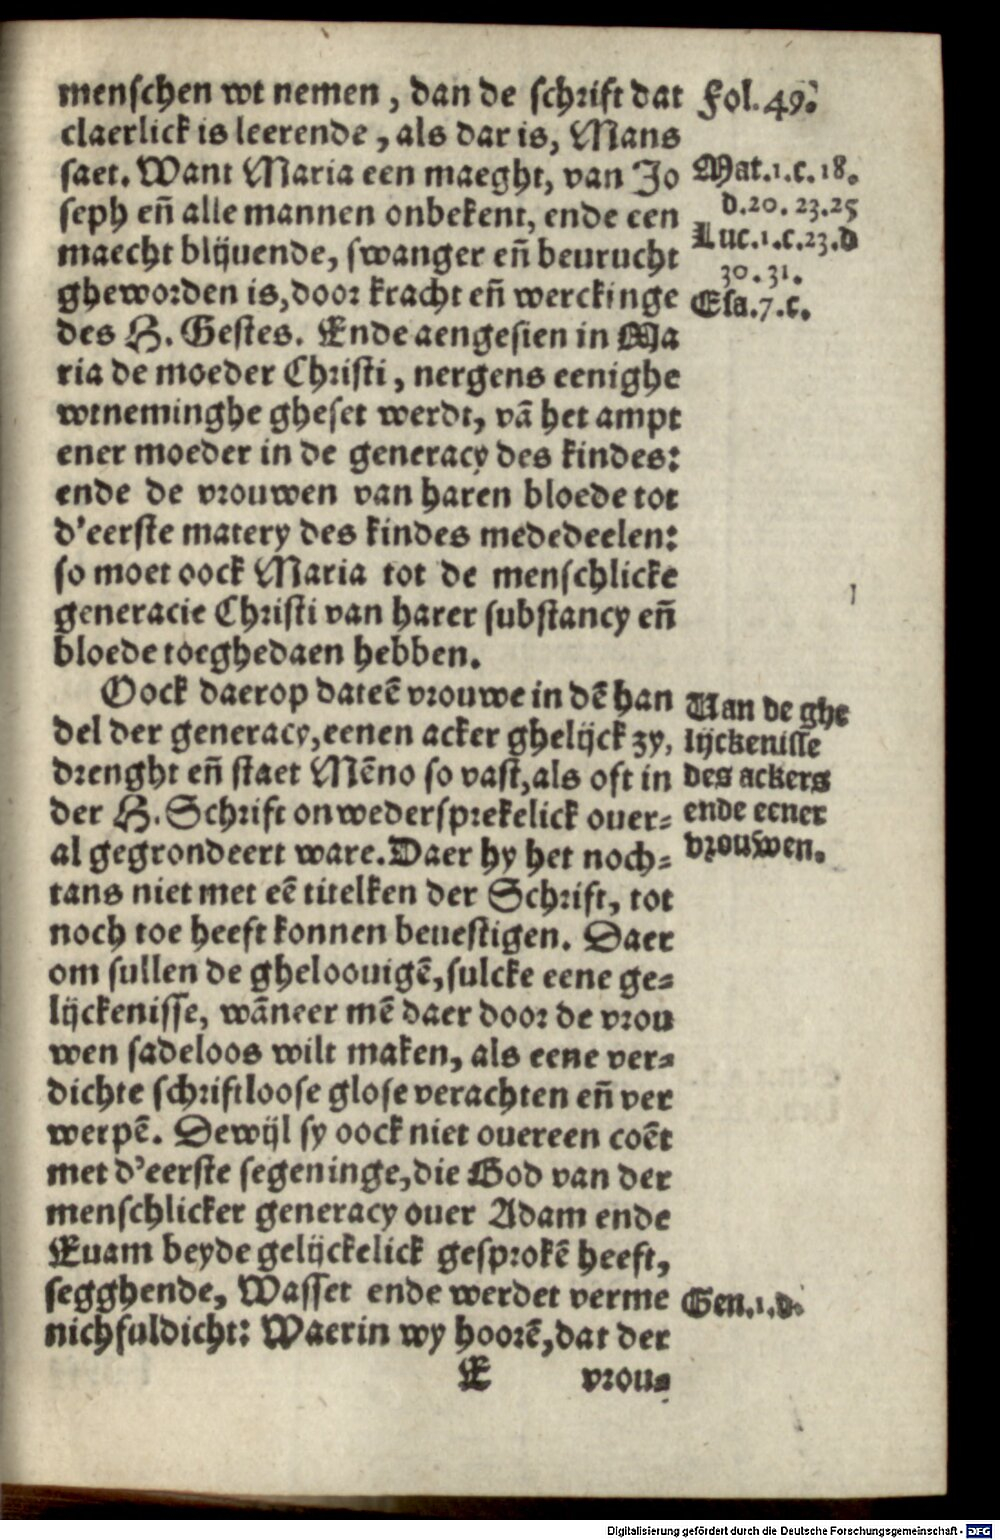 menschen wt nemen, dan de schrift dat
claerlick is leerende, als dar is, Mans
saet. Want Maria een maeght, van Jo
seph eñ alle mannen onbekent, ende een
maecht blijuende, swanger eñ beurucht
gheworden is, door kracht eñ werckinge
des H. Gestes. Ende aengesien in Ma
ria de moeder Christi, nergens eenighe
wtneminghe gheset werdt, vã het ampt
ener moeder in de generacy des kindes:
ende de vrouwen van haren bloede tot
d'eerste matery des kindes mededeelen:
so moet oock Maria tot de menschlicke
generacie Christi van harer substancy eñ
bloede toeghedaen hebben.
Oock daerop dateẽ vrouwe in dẽ han
del der generacy, eenen acker ghelijck zy,
drenght eñ staet Mẽno so vast, als oft in
der H. Schrift onwedersprekelick ouer-
al gegrondeert ware. Daer hy het noch-
tans niet met eẽ titelken der Schrift, tot
noch toe heeft konnen beuestigen. Daer
om sullen de gheloouigẽ, sulcke eene ge-
lijckenisse, wãneer mẽ daer door de vrou
wen sadeloos wilt maken, als eene ver-
dichte schriftloose glose verachten eñ ver
werpẽ. Dewijl sy oock niet ouereen coẽt
met d'eerste segeninge, die God van der
menschlicker generacy ouer Adam ende
Euam beyde gelijckelick gesprokẽ heeft,
segghende, Wasset ende werdet verme
nichfuldicht: Waerin wy hoorẽ, dat der
E vrou-
Fol. 49.
Mat. 1. c. 18.
d. 20. 23. 25
Luc. 1. c. 23. d
30. 31.
Esa. 7. c.
Van de ghe
lijckenisse
des ackers
ende eener
vrouwen.
Gen. 1. d.
Digitalisierung gefördert durch die Deutsche Forschungsgemeinschaft - DFG